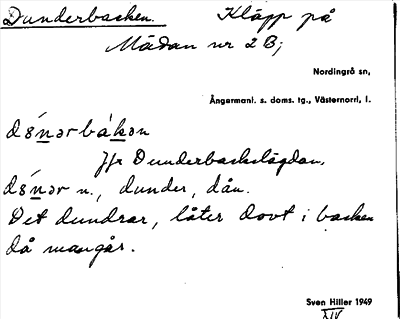 Dunderbacken. Kläpp på
Mädan nr 2 B;
Nordingrå sn,
Ångermanl. s. doms. tg., Västernorrl. l.
dśnərbákən
Jfr Dunderbackslägdan.
dśnər n., dunder, dån.
Det dundrar, låter dovt i backen
då man går.
Sven Hiller 1949
XIV